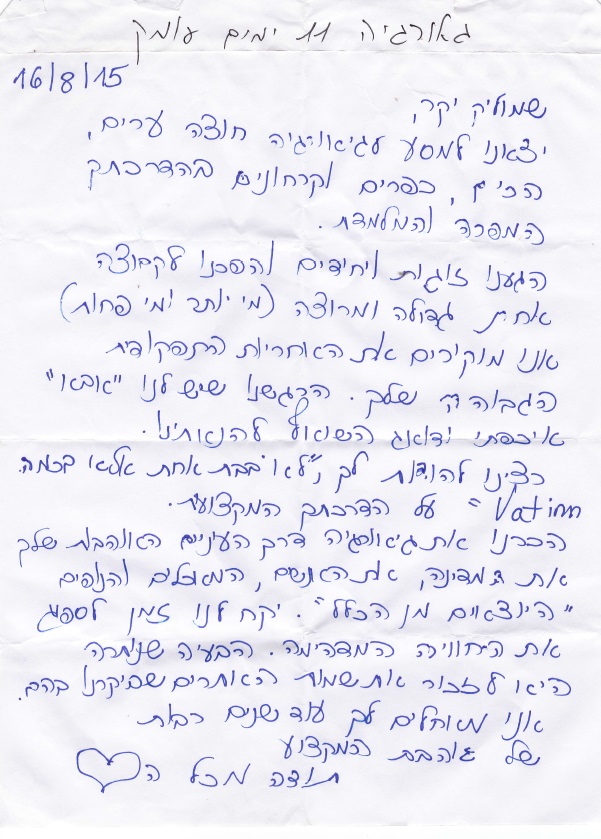 גאורגיה 11 ימים עומק
16/8/15
שמוליק יקר,
יצאנו למסע לגיאורגיה חוצה ערים,
הרים, כפרים וקרחונים בהדרכתך
המפרה והמלמדת.
הגענו זוגות ויחידים והפכנו לקבוצה
אחת גדולה ומרוצה (מי יותר ומי פחות)
אנו מוקירים את האחריות התפקודית
הגבוהה שלך. הרגשנו שיש לנו "אבא"
איכפתי ודואג השואף להנאותינו.
רצינו להודות לך, לא בבת אחת אלא בכמה.
Vatinn = על הדרכתך המקצועית.
הכרנו את גיאורגיה דרך העיניים האוהבות שלך
את המדינה, את האנשים, המאכלים והנופים
"היוצאים מן הכלל". יקח לנו זמן לספוג
את החוויה המדהימה. הבעיה שנותרה
היא לזכור את שמות האתרים שביקרנו בהם.
אנו מאחלים לך עוד שנים רבות
של אהבת המקצוע
תודה מכל ה